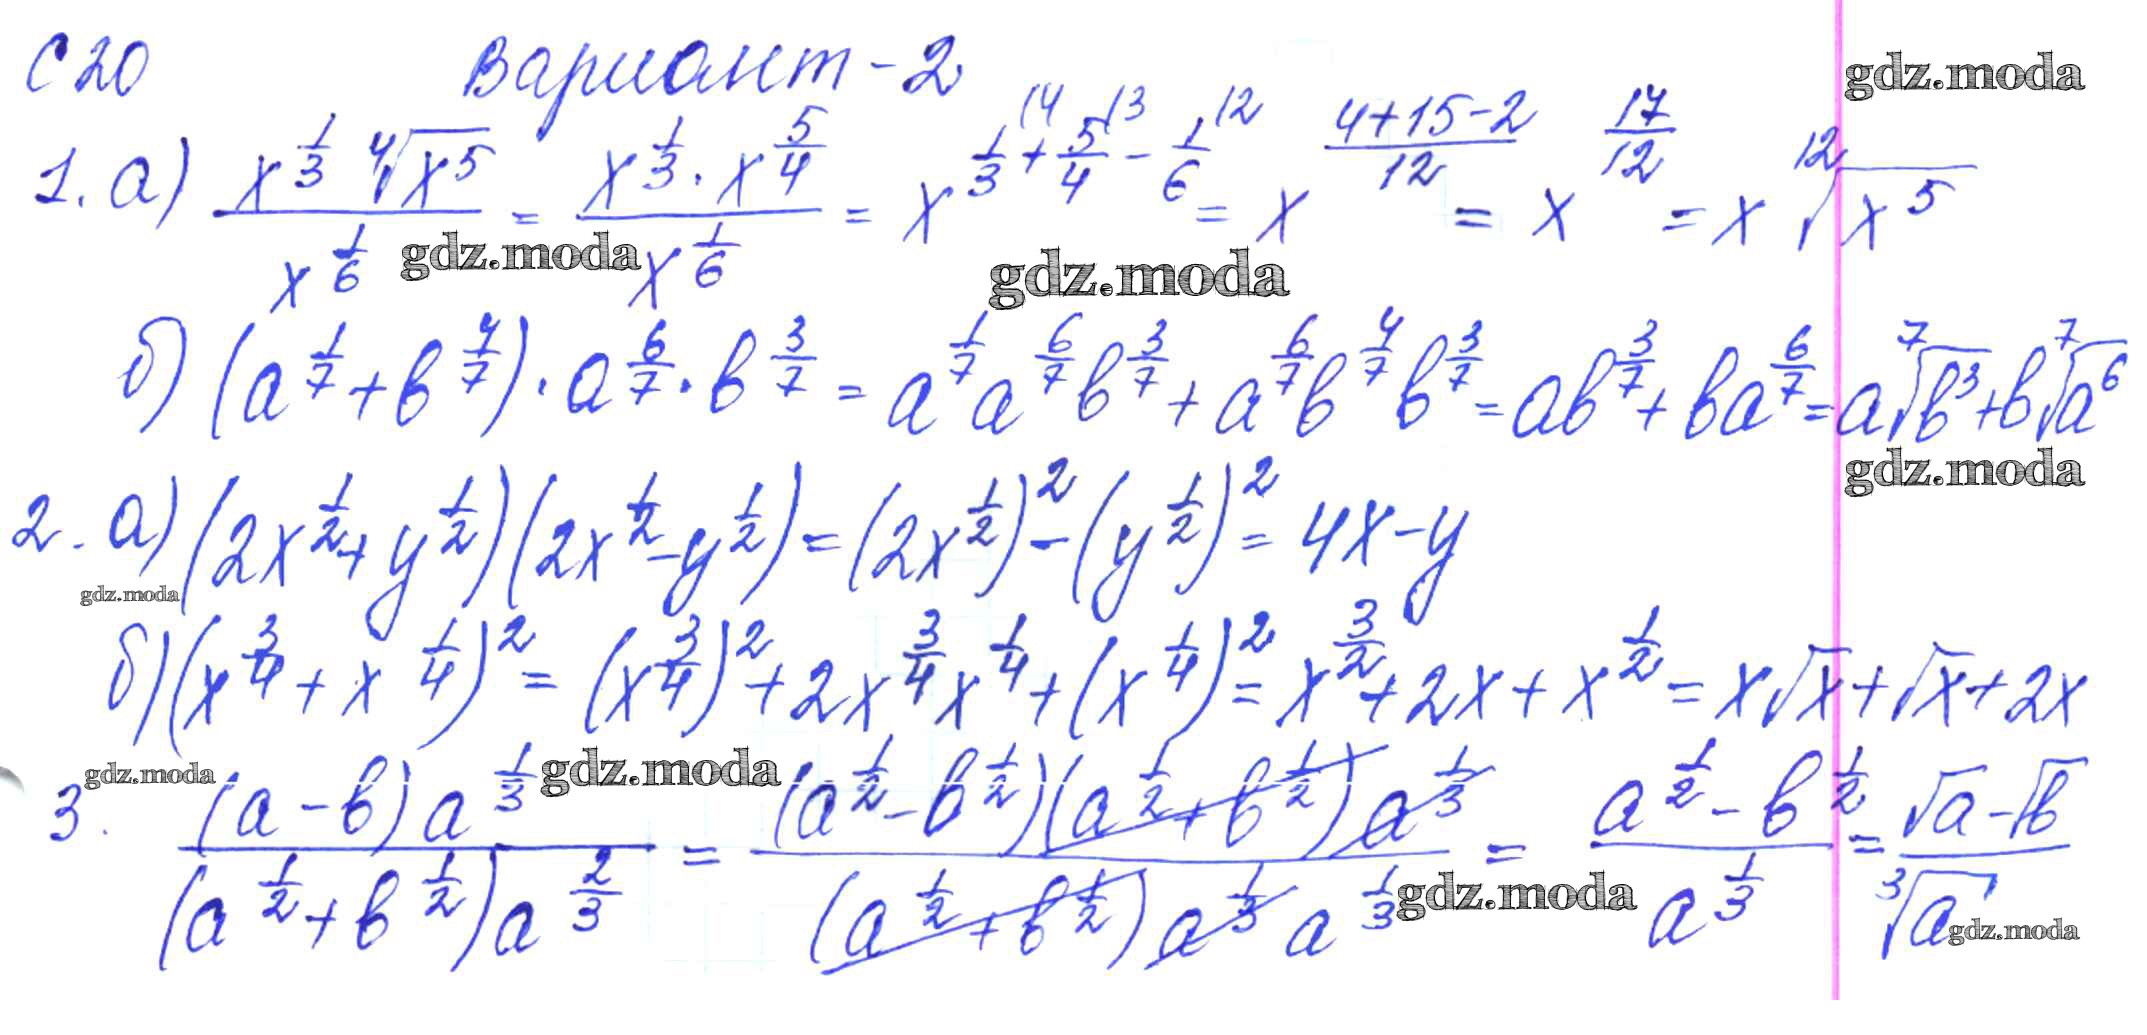 С 20 Вариант - 2
gdz.moda
1. а) x^(1/3) ⁴√(x^5) / x^(1/6) = x^(1/3) · x^(5/4) / x^(1/6) = x^(1/3 (4 + 5/4 (3 - 1/6 (2) = x^((4+15-2)/12) = x^(17/12) = x ¹²√(x^5)
gdz.moda gdz.moda
б) (a^(1/7) + b^(4/7)) · a^(6/7) · b^(3/7) = a^(1/7) a^(6/7) b^(3/7) + a^(6/7) b^(4/7) b^(3/7) = ab^(3/7) + ba^(6/7) = a ⁷√(b^3) + b ⁷√(a^6)
gdz.moda
2. а) (2x^(1/2) + y^(1/2)) (2x^(1/2) - y^(1/2)) = (2x^(1/2))^2 - (y^(1/2))^2 = 4x - y
gdz.moda
б) (x^(3/4) + x^(1/4))^2 = (x^(3/4))^2 + 2x^(3/4) x^(1/4) + (x^(1/4))^2 = x^(3/2) + 2x + x^(1/2) = x√x + √x + 2x
gdz.moda gdz.moda
3. (a - b) a^(1/3) / (a^(1/2) + b^(1/2)) a^(2/3) = (a^(1/2) - b^(1/2)) (a^(1/2) + b^(1/2)) a^(1/3) / (a^(1/2) + b^(1/2)) a^(1/3) a^(1/3) = (a^(1/2) - b^(1/2)) / a^(1/3) = (√a - √b) / ³√a
gdz.moda gdz.moda